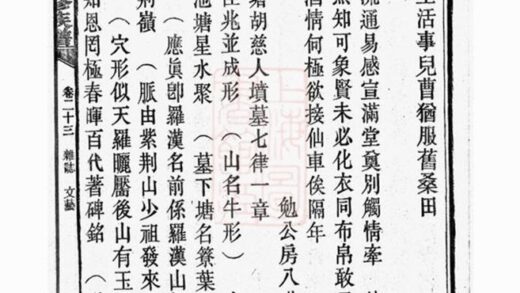 活事兒曹猶服舊桑田
流通易感宣滿堂奠別觸情牽
知可象賢未必化衣同布帛敢
酒情何極欲接仙車俟隔年
勉公房八
塘胡慈人墳墓七律一章
兆並成形（山名牛形）
池塘星水聚（墓下塘名寮葉
（應眞卽羅漢名前係羅漢山
荊嶺（脈由紫荊山少祖發來
（穴形似天羅曬靨後山有玉
知恩罔極春暉百代著碑銘（
族譜 卷二十三 雜誌 文藝